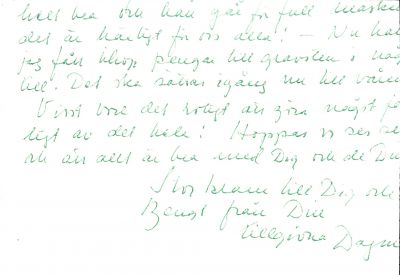 helt bra och han går för full maskin
det är härligt för oss alla! – Nu har
jag fått ihop pengar till gravsten i
till. Det ska sättas igång nu till våren
Visst vore det roligt att göra något
av det hela! Hoppas vi ses
att allt är bra med Dig och de
Stor kram till Dig och
Bengt från Din
tillgivna Dagm